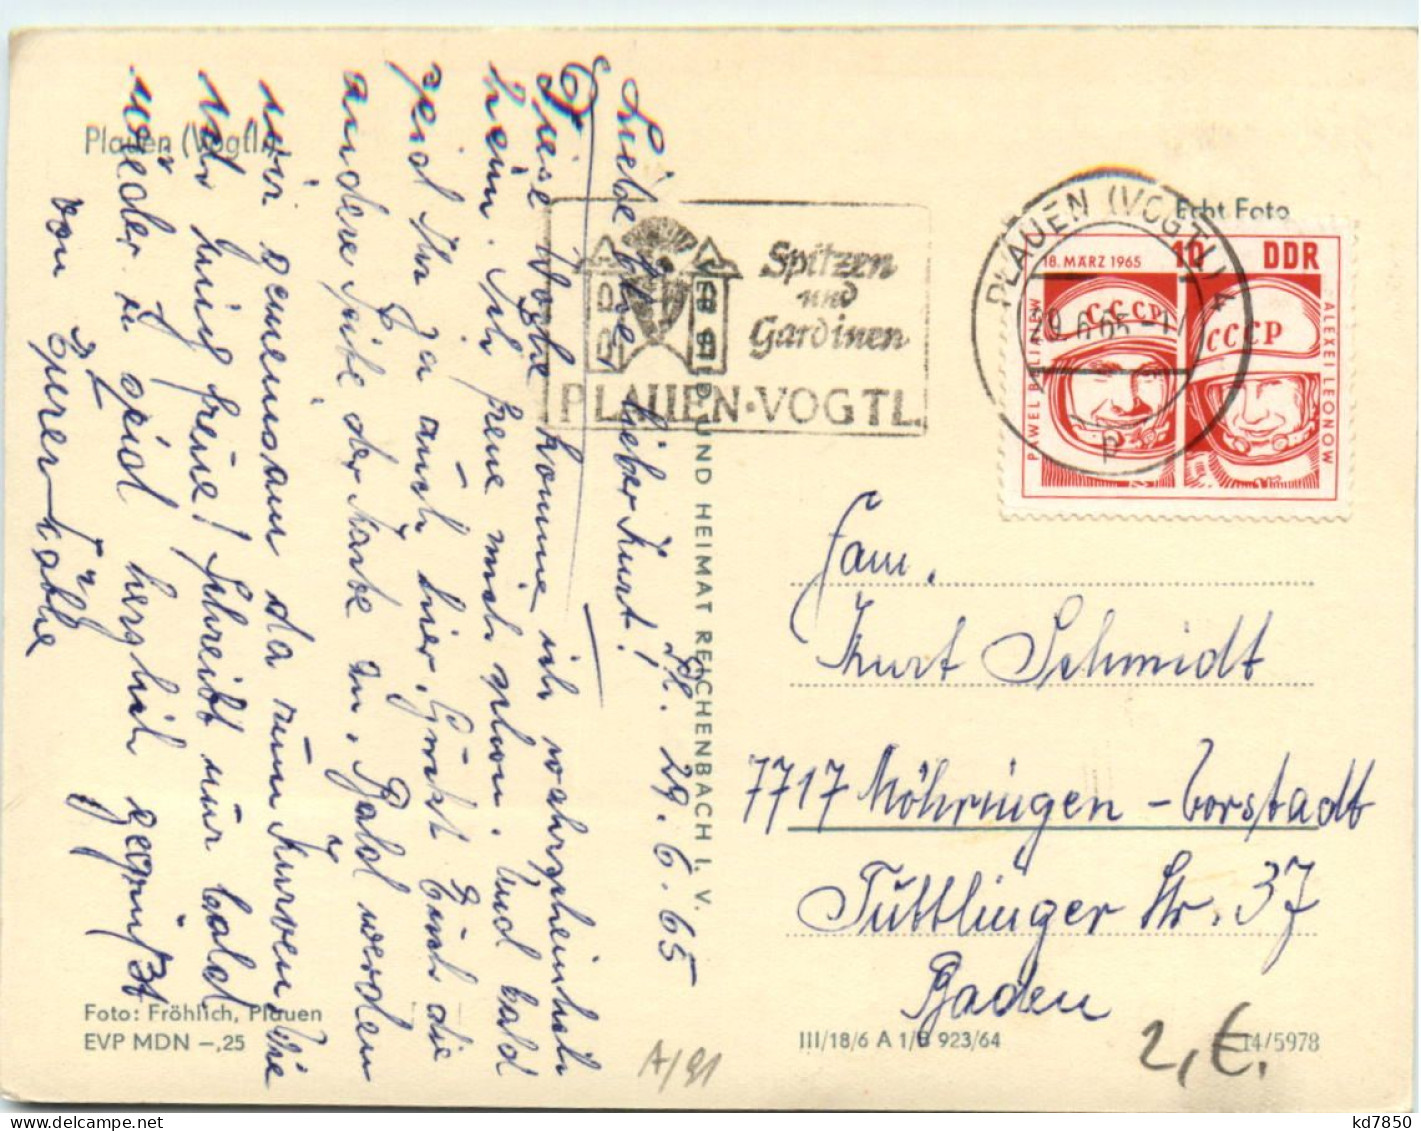 Plauen (Vogtl.)
Pl. 29.6.65
Liebe Elke, lieber Kurt!
Diese Woche komme ich wahrscheinlich
heim. Ich freue mich schon. Und bald
seid Ihr ja auch hier. Guckt Euch die
andere Seite der Karte an. Bald werden
wir gemeinsam da rum kurven. Wie
ich mich freue! Schreibt nur bald
wieder u. seid herzlich gegrüßt
von Eurer Käthe
Foto: Fröhlich, Plauen
EVP MDN –,25
BILD UND HEIMAT REICHENBACH I. V.
Spitzen
und
Gardinen
PLAUEN·VOGTL.
PLAUEN (VOGTL) 4
29.6.65-17
p
Echt Foto
18. MÄRZ 1965
10 DDR
PAWEL BELJAJEW
ALEXEI LEONOW
CCCP
CCCP
Fam.
Kurt Schmidt
7717 Möhringen-Vorstadt
Tuttlinger Str. 37
Baden
III/18/6 A 1/B 923/64
14/5978
A/91
2,€.
kd7850